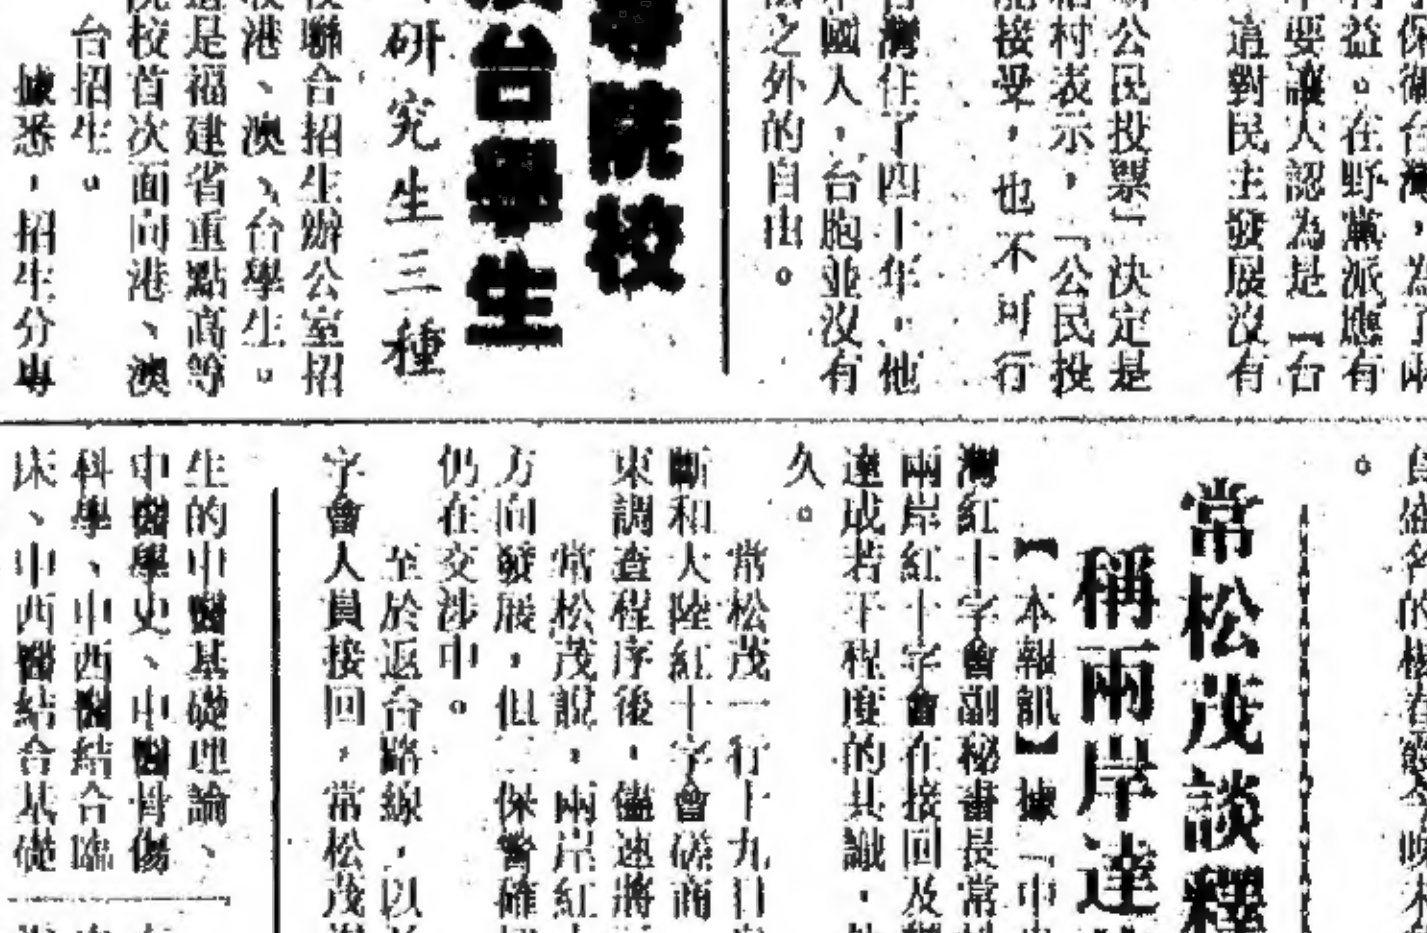 保衛台灣，為了兩
利益。在野黨派應有
不要讓人認為是「台
這對民主發展沒有
公民投票」決定是
村表示，「公民投
能接受，也不可行
台灣住了四十年，他
中國人，台胞並沒有
之外的自由。
等院校
台學生
研究生三種
聯合招生辦公室招
港、澳、台學生。
這是福建省重點高等
院校首次面向港、澳
台招生。
據悉，招生分專
負盛名的
常松茂談釋
稱兩岸達
【本報訊】據「中
灣紅十字會副秘書長常
兩岸紅十字會在接回及
達成若干程度的共識，
久。
常松茂一行十九日
斷和大陸紅十字會磋商
東調查程序後，儘速將
常松茂說，兩岸紅
方向發展，但三保警確
仍在交涉中。
至於返台路線，以
字會人員接回，常松茂
生的中醫基礎理論、
中醫學史、中醫骨傷
科學、中西醫結合臨
床、中西醫結合基礎